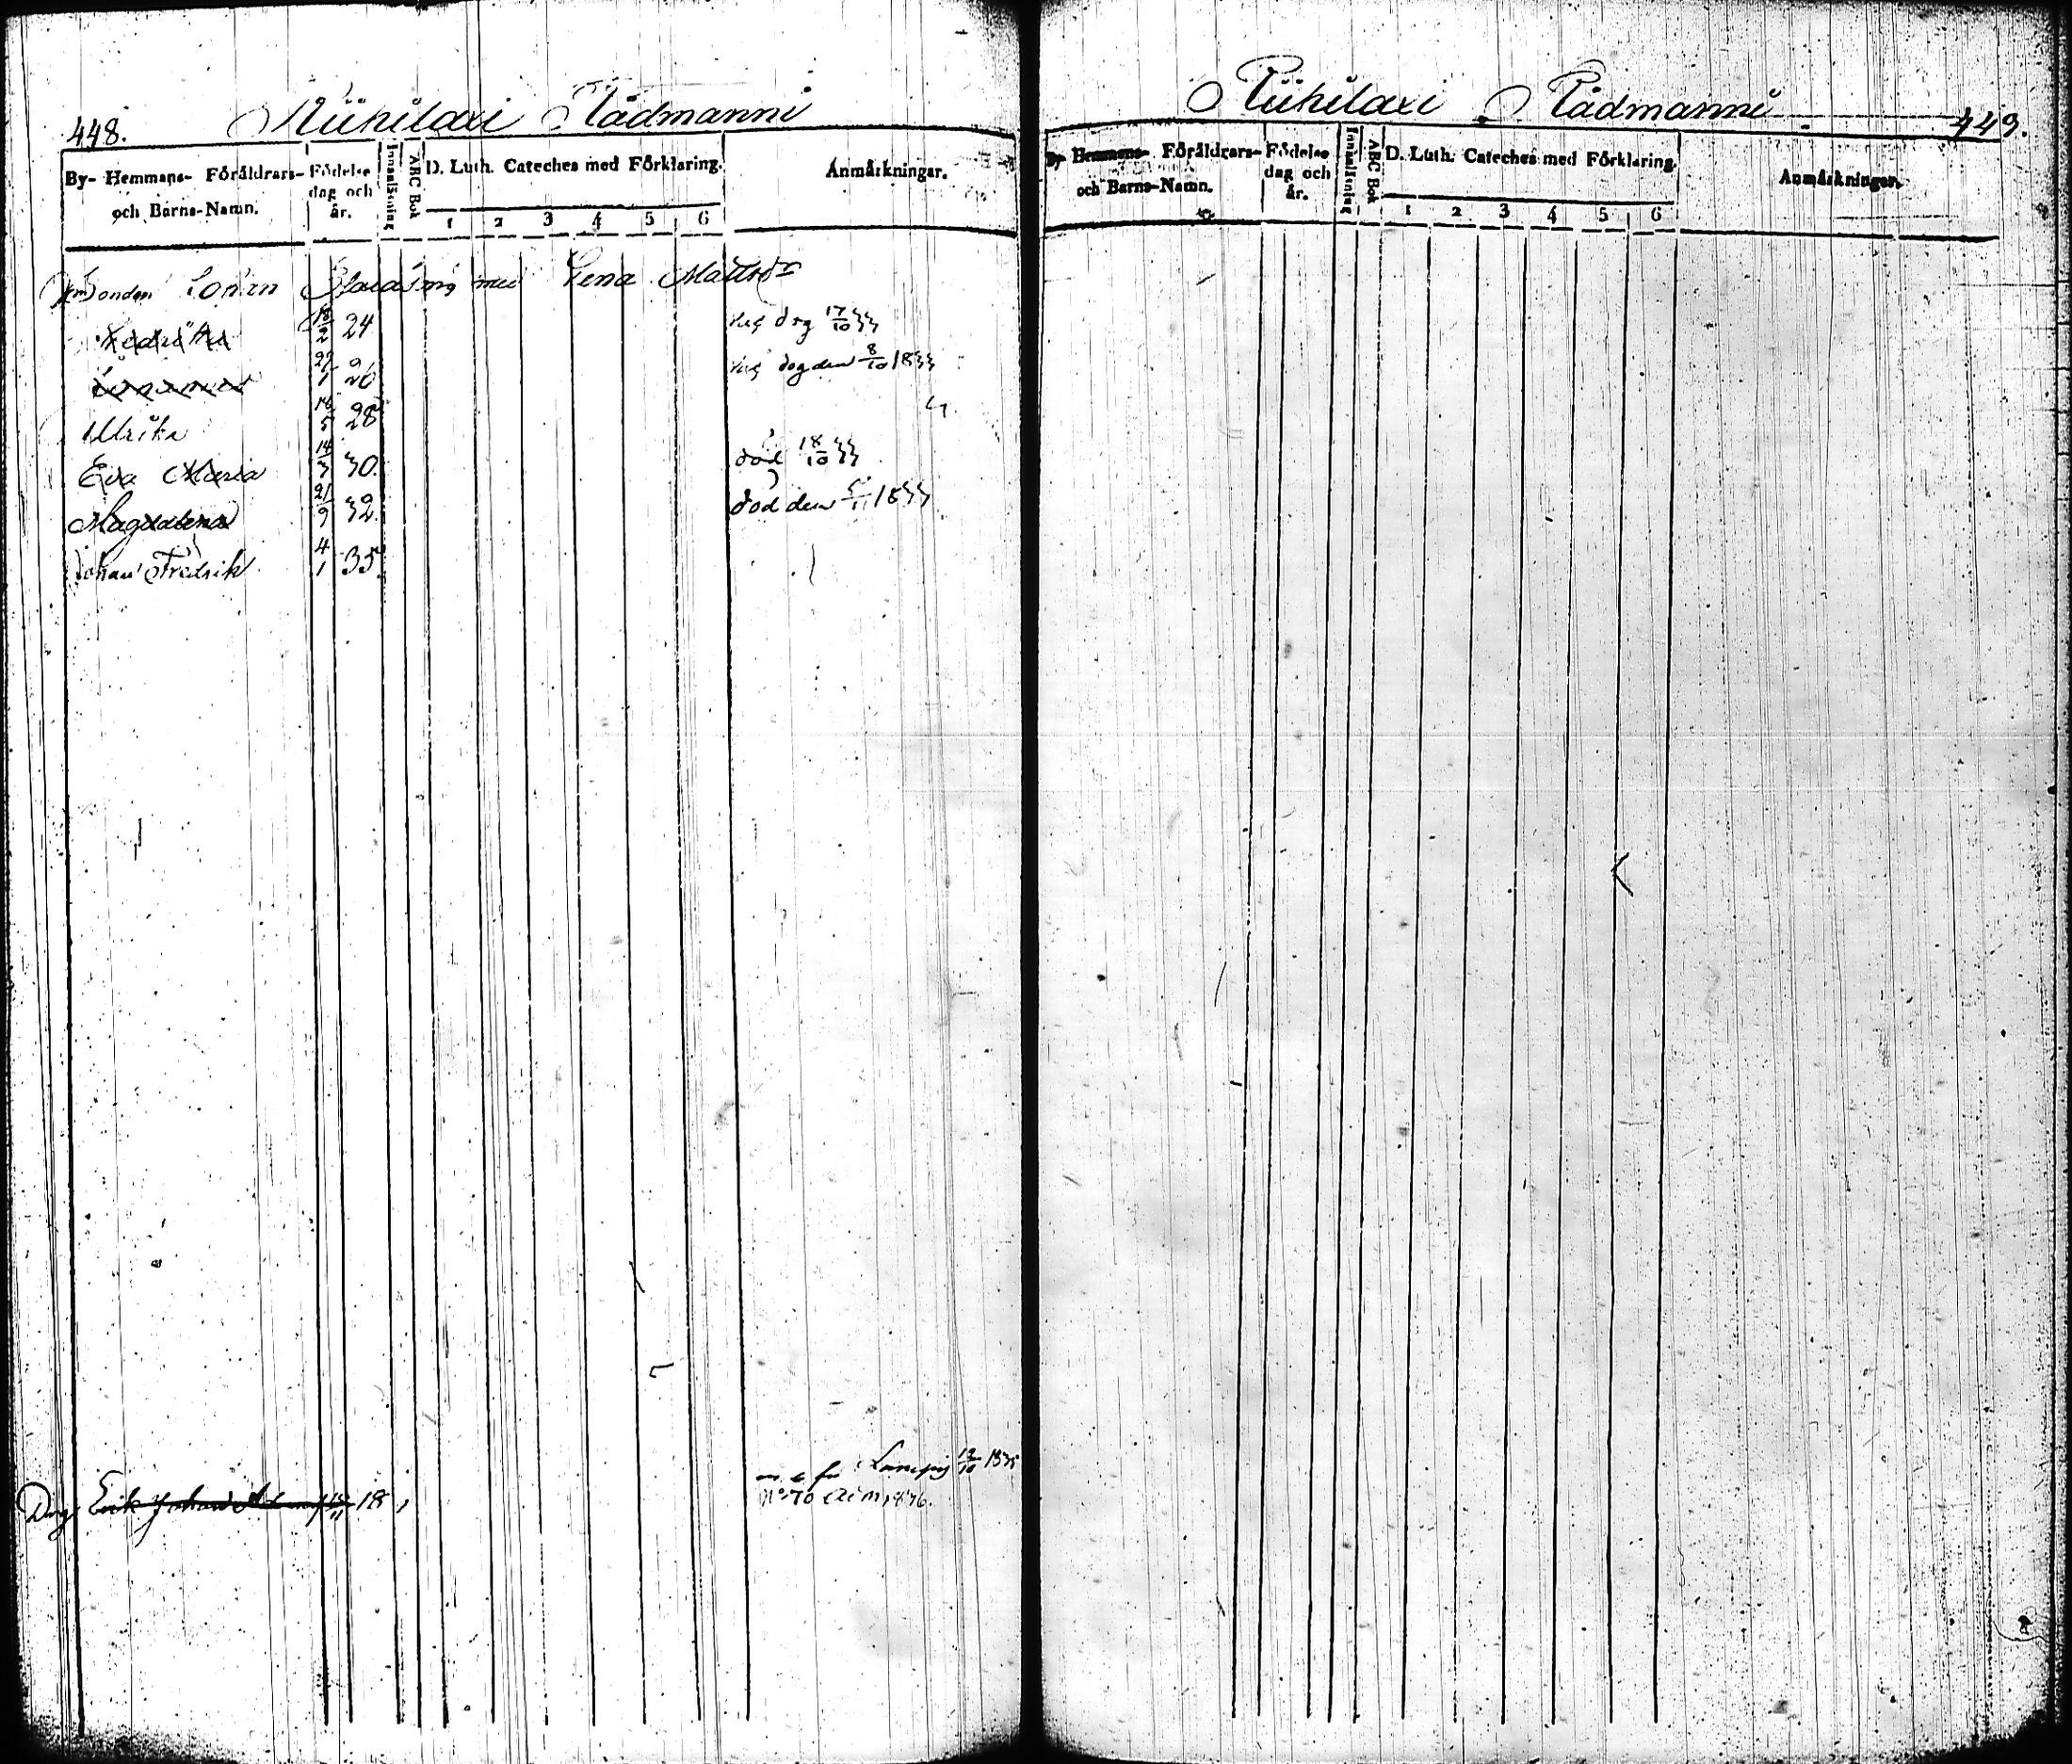 448.
Riihilaxi Rådmanni
By- Hemmans- Föräldrars- och Barns-Namn.
Födelse dag och år.
Innanläsning
ABC Bok
D. Luth. Cateches med Förklaring.
1 2 3 4 5 6
Anmärkningar.
Bonden Johan med Lena Mattsdr
18/2 24 dog 17/10 33
26 dog den 8/10 1833
Ulrika 16/5 28
Eva Maria 14/3 30. död 18/10 33
Magdalena 21/9 32 död den 1833
Johan Fredrik 4/1 35.
12/10 1835
Drg Erik Johan 18
No 70
Riihilaxi Rådmanni
449.
By- Hemmans- Föräldrars- och Barns-Namn.
Födelse dag och år.
Innanläsning
ABC Bok
D. Luth. Cateches med Förklaring.
1 2 3 4 5 6
Anmärkningar.